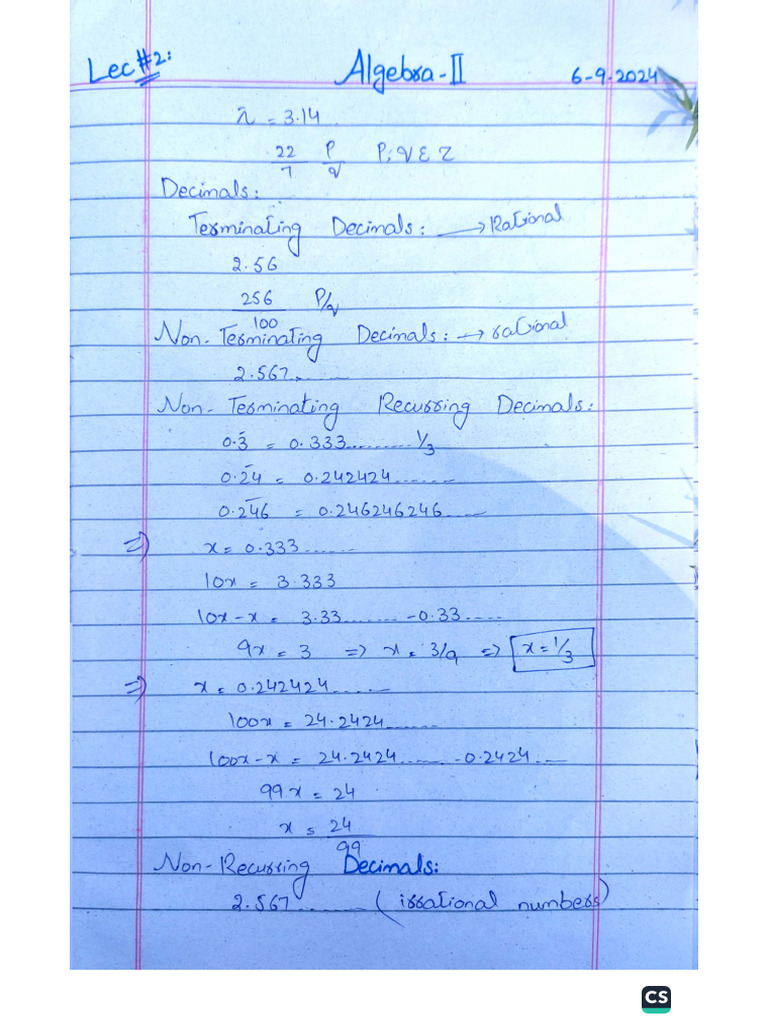 Lec#2: Algebra-II 6-9-2024
π = 3.14
22/7 P/q P, q ε Z
Decimals:
Terminating Decimals: → Rational
2.56
256/100 P/q
Non-Terminating Decimals: → rational
2.567........
Non-Terminating Recurring Decimals:
0.3̄ = 0.333.......... 1/3
0.2̄4̄ = 0.242424........
0.2̄4̄6̄ = 0.246246246......
⇒ x = 0.333.......
10x = 3.333
10x-x = 3.33........ -0.33.....
9x = 3 ⇒ x = 3/9 ⇒ x = 1/3
⇒ x = 0.242424.......
100x = 24.2424.......
100x-x = 24.2424....... -0.2424.....
99x = 24
x = 24/99
Non-Recurring Decimals:
2.567......... (irrational numbers)
CS